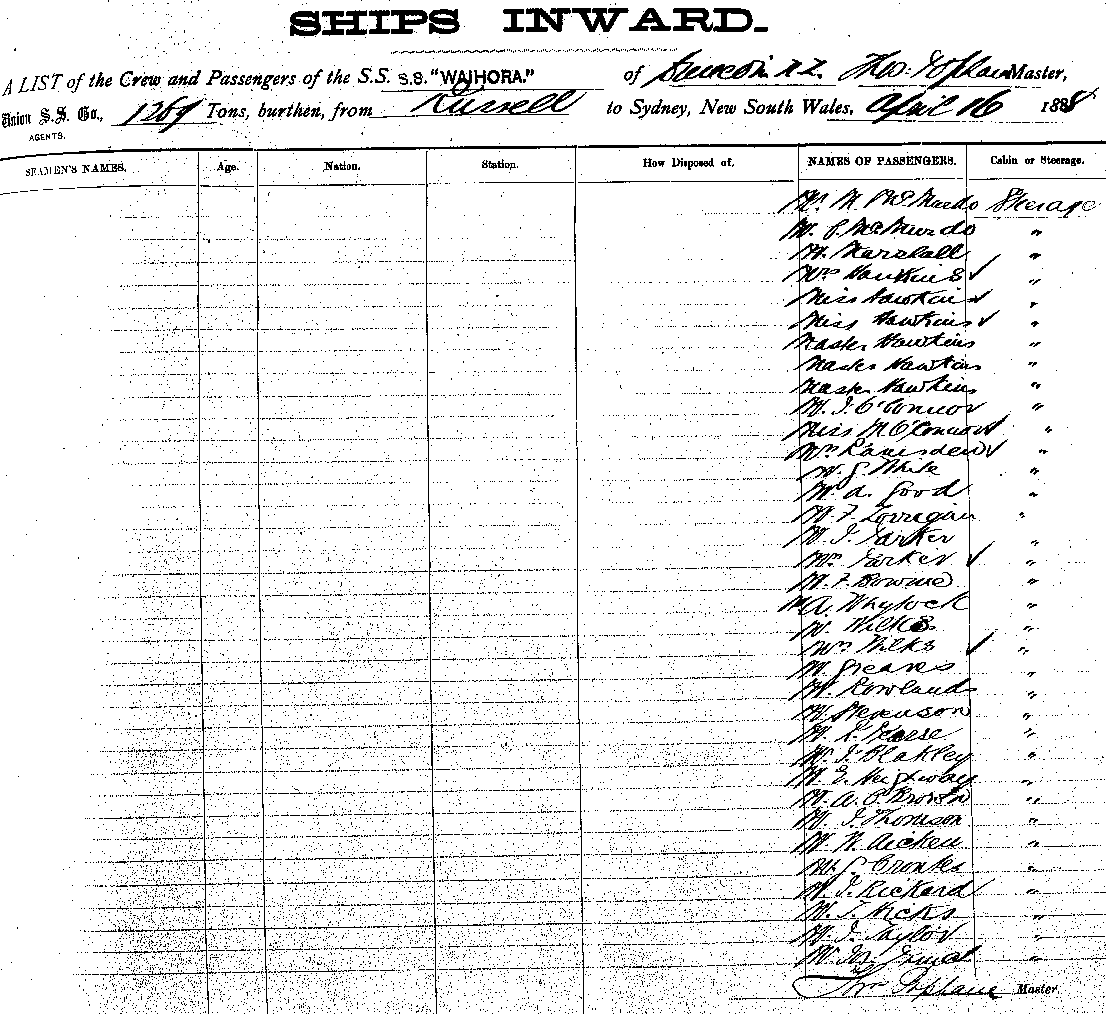 SHIPS INWARD.
A LIST of the Crew and Passengers of the S.S. S.S. "WAIHORA." of Dunedin N.Z. Thos. Popham Master,
Union S.S. Co., 1269 Tons, burthen, from Russell to Sydney, New South Wales, April 16 1888
AGENTS.
SEAMEN'S NAMES. Age. Nation. Station. How Disposed of. NAMES OF PASSENGERS. Cabin or Steerage.
Mr. M. McMurdo Steerage
Mr. P. McMurdo "
Mr. Marshall "
Mrs Hawkins ✓ "
Miss Hawkins ✓ "
Miss Hawkins ✓ "
Master Hawkins "
Master Hawkins "
Master Hawkins "
Mr. J. O'Connor "
Miss M O'Connor ✓ "
Mrs Ramsden ✓ "
Mr G. White "
Mr A. Good "
Mr. F. "
Mr. J. Parker "
Mrs Parker ✓ "
Mr. F. Browne "
Mr A. Whylock "
Mr. Wilks "
Mrs Wilks ✓ "
Mr Greaves "
Mr. Rowlands "
Mr Stevenson "
Mr. R. "
Mr. J. Blakley "
Mr. E. "
Mr. A. C. Brown "
Mr. J. Thomson "
Mr. W. Aicken "
Mr. "
Mr. J. Rickard "
Mr. T. Hicks "
Mr. J. Taylor "
Mr. "
Master.